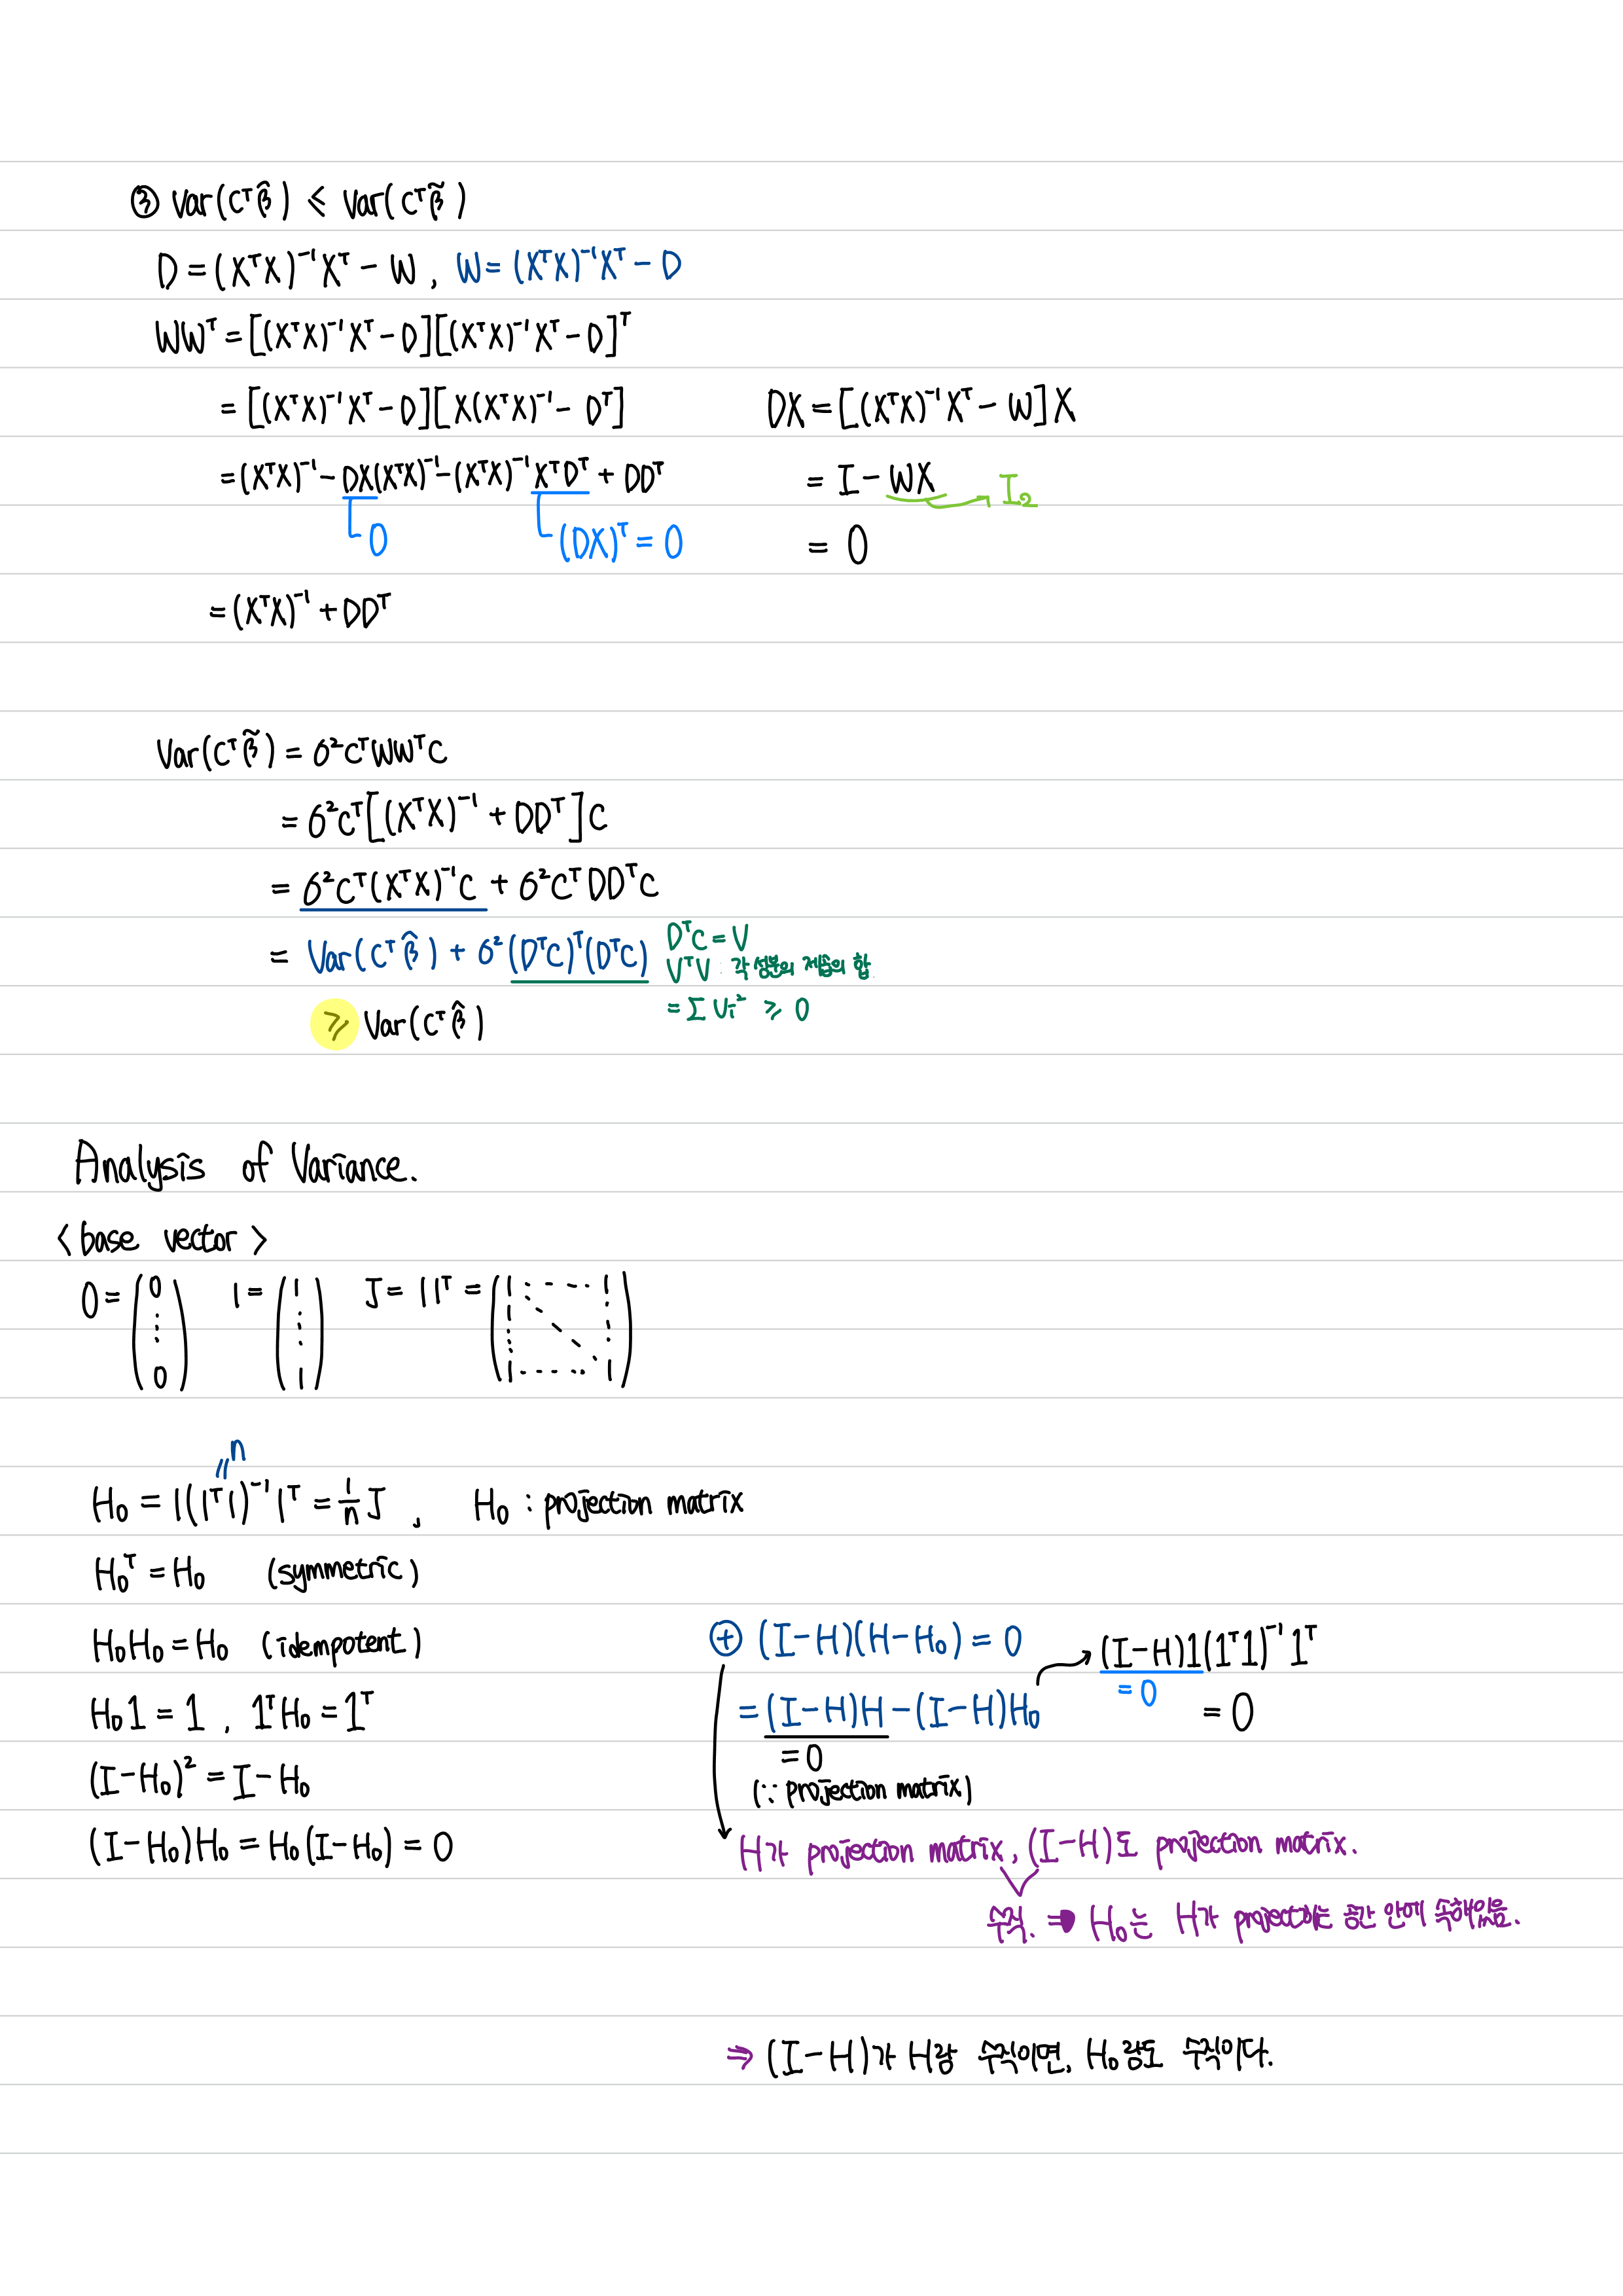 ③ Var(Cᵀβ̂) ≤ Var(Cᵀβ̃)
D = (XᵀX)⁻¹Xᵀ - W , W = (XᵀX)⁻¹Xᵀ - D
WWᵀ = [(XᵀX)⁻¹Xᵀ - D][(XᵀX)⁻¹Xᵀ - D]ᵀ
= [(XᵀX)⁻¹Xᵀ - D][X(XᵀX)⁻¹ - Dᵀ]
= (XᵀX)⁻¹ - DX(XᵀX)⁻¹ - (XᵀX)⁻¹XᵀDᵀ + DDᵀ
0
(DX)ᵀ = 0
= (XᵀX)⁻¹ + DDᵀ
DX = [(XᵀX)⁻¹Xᵀ - W]X
= I - WX I₂
= 0
Var(Cᵀβ̃) = σ²CᵀWWᵀC
= σ²Cᵀ[(XᵀX)⁻¹ + DDᵀ]C
= σ²Cᵀ(XᵀX)⁻¹C + σ²CᵀDDᵀC
= Var(Cᵀβ̂) + σ²(DᵀC)ᵀ(DᵀC)
≥ Var(Cᵀβ̂)
DᵀC = V
VᵀV : 각 성분의 제곱의 합.
= Σ Vi² ≥ 0
Analysis of Variance.
< base vector >
0 = (0 ⋮ 0) 1 = (1 ⋮ 1) J = 11ᵀ = (1 ---- 1 ⋮ ⋱ ⋮ 1 ---- 1)
n
H₀ = 1(1ᵀ1)⁻¹1ᵀ = 1/n J , H₀ : projection matrix
H₀ᵀ = H₀ (symmetric)
H₀H₀ = H₀ (idempotent)
H₀1 = 1 , 1ᵀH₀ = 1ᵀ
(I-H₀)² = I-H₀
(I-H₀)H₀ = H₀(I-H₀) = 0
⊕ (I-H)(H-H₀) = 0
= (I-H)H - (I-H)H₀
= 0
(∵ projection matrix)
(I-H)1(1ᵀ1)⁻¹1ᵀ
= 0
= 0
H가 projection matrix, (I-H)도 projection matrix.
수직. ⇒ H₀는 H가 project하는 공간 안에 속해있음.
⇒ (I-H)가 H랑 수직이면, H₀랑도 수직이다.